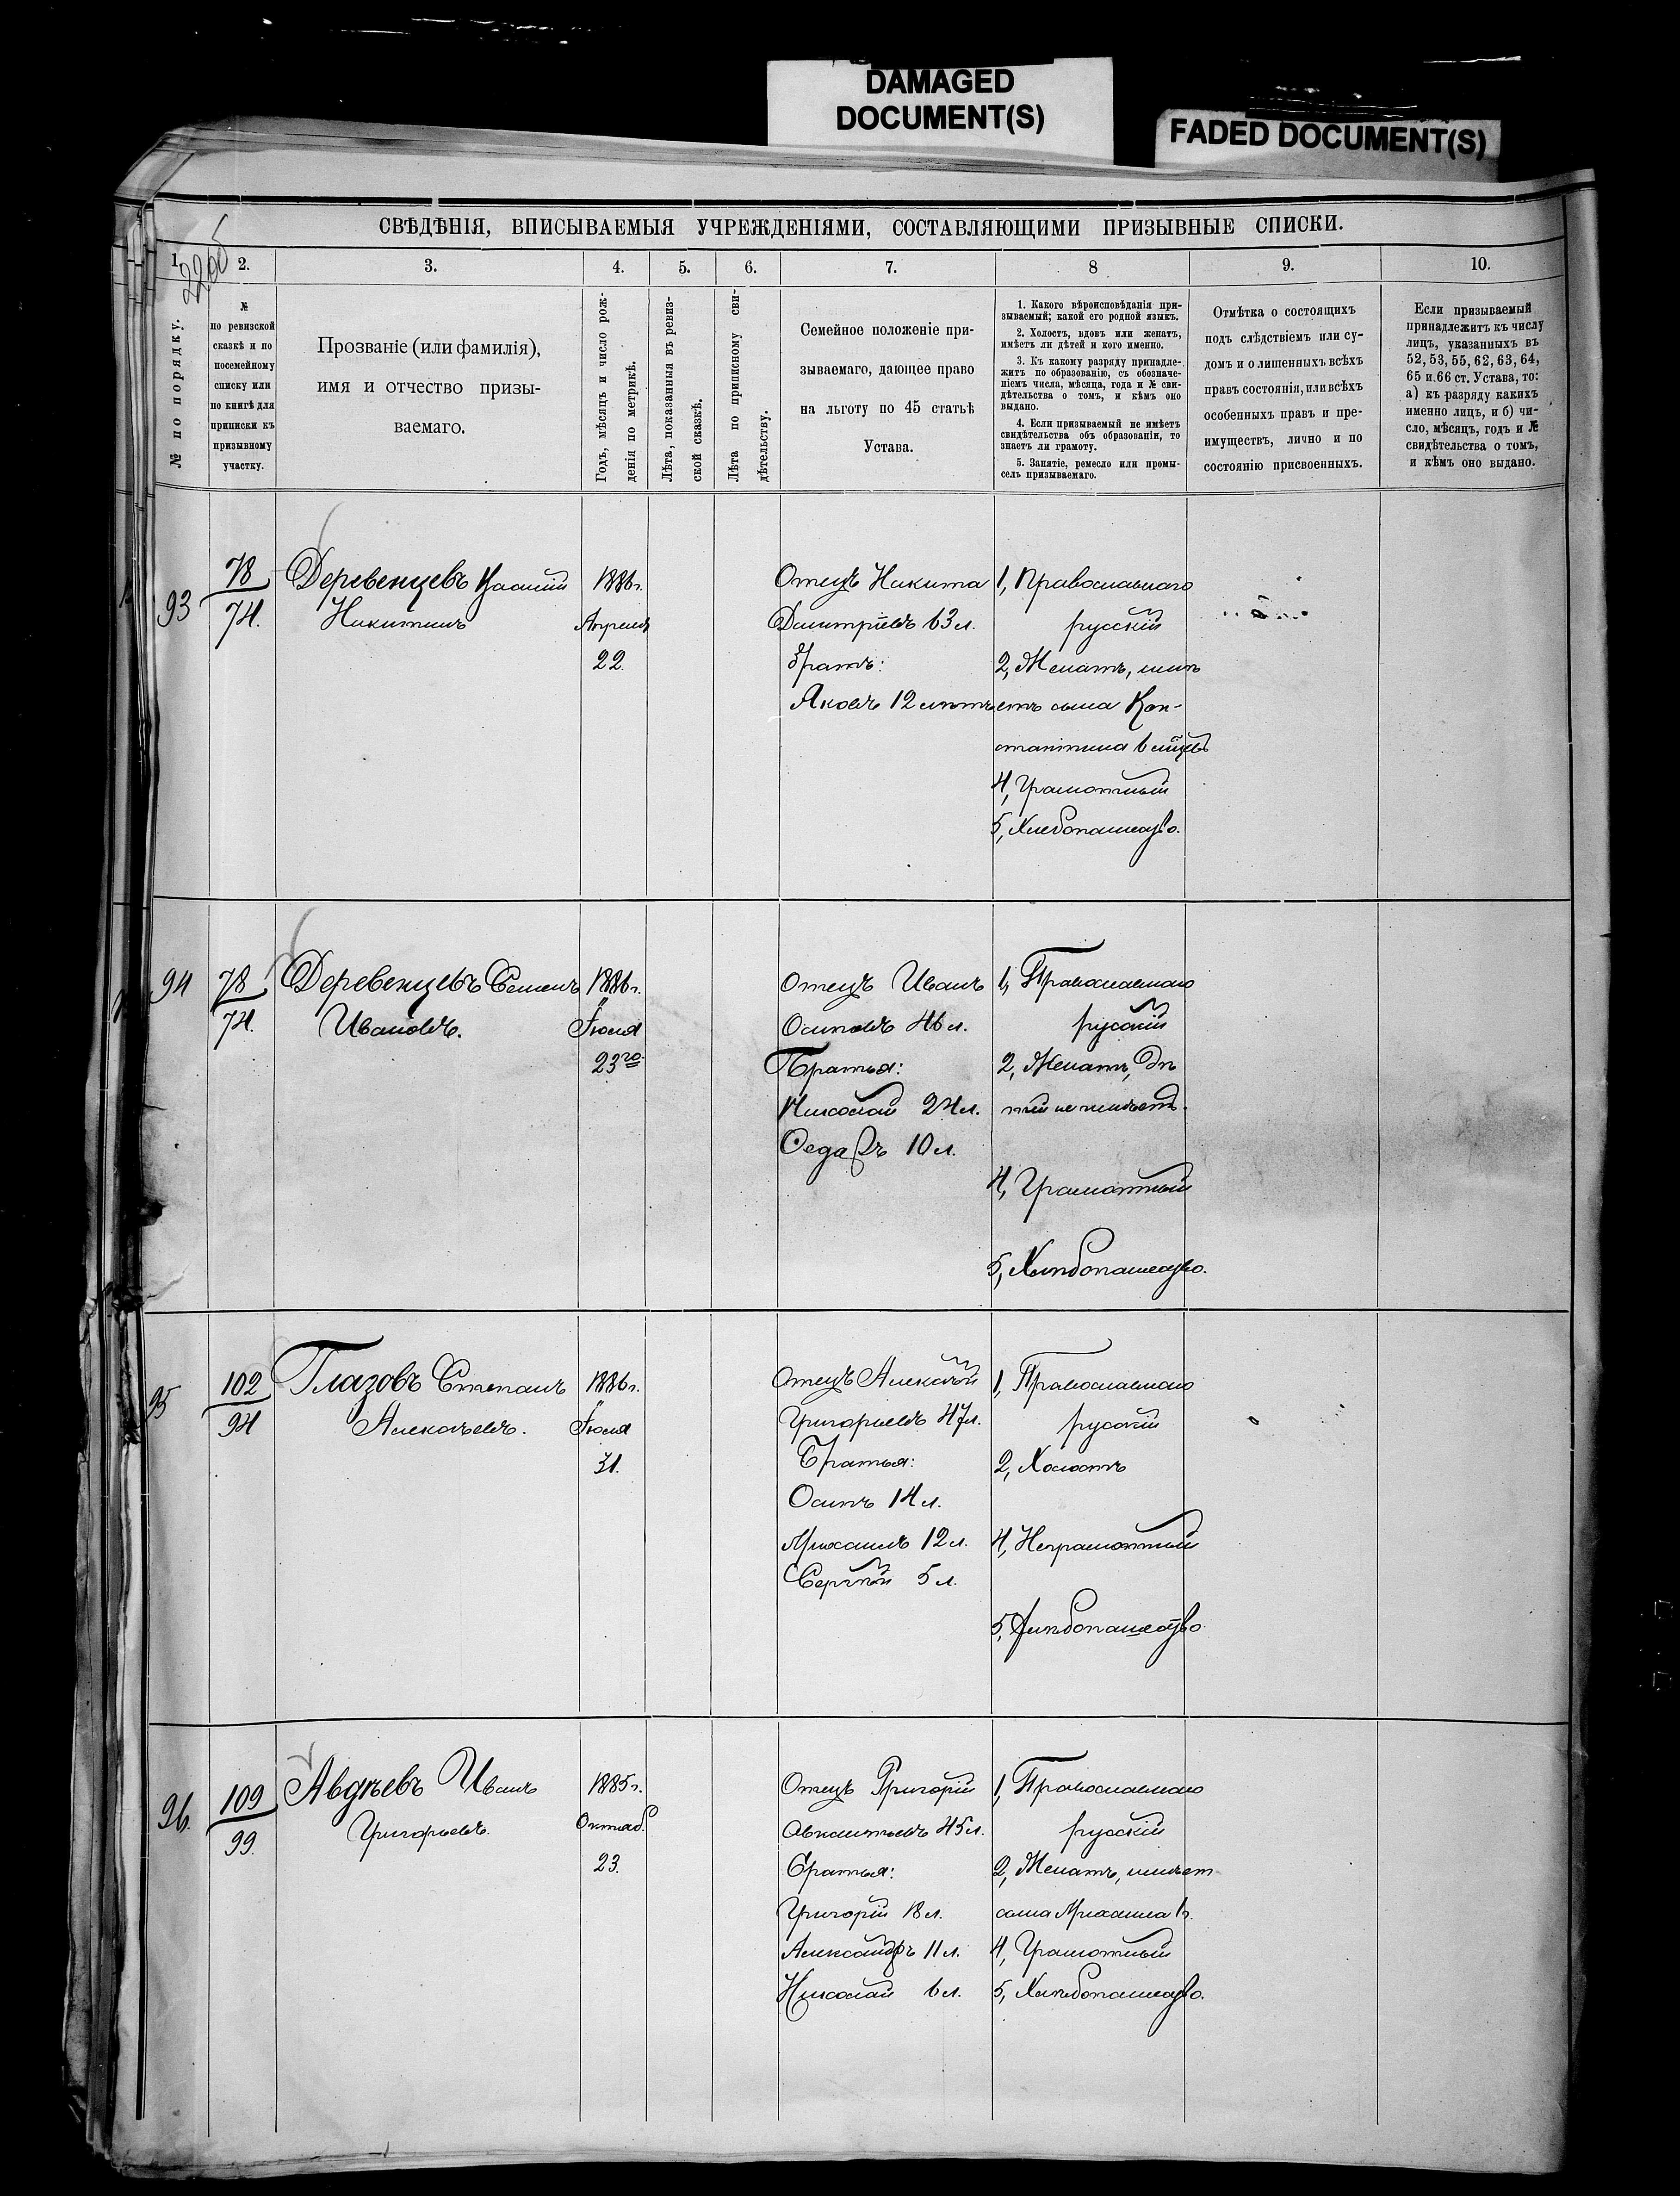 DAMAGED
DOCUMENT(S)
FADED DOCUMENT(S)
СВѢДѢНІЯ, ВПИСЫВАЕМЫЯ УЧРЕЖДЕНІЯМИ, СОСТАВЛЯЮЩИМИ ПРИЗЫВНЫЕ СПИСКИ.
1. 2. 3. 4. 5. 6. 7. 8 9. 10.
№ по порядку.
№
по ревизской
сказкѣ и по
посемейному
списку или
по книгѣ для
приписки къ
призывному
участку.
Прозваніе (или фамилія),
имя и отчество призы-
ваемаго.
Годъ, мѣсяцъ и число рож-
денія по метрикѣ.
Лѣта, показанныя въ ревиз-
ской сказкѣ.
Лѣта по приписному сви-
дѣтельству.
Семейное положеніе при-
зываемаго, дающее право
на льготу по 45 статьѣ
Устава.
1. Какого вѣроисповѣданія при-
зываемый; какой его родной языкъ.
2. Холостъ, вдовъ или женатъ,
имѣетъ ли дѣтей и кого именно.
3. Къ какому разряду принадле-
житъ по образованію, съ обозначе-
ніемъ числа, мѣсяца, года и № сви-
дѣтельства о томъ, и кѣмъ оно
выдано.
4. Если призываемый не имѣетъ
свидѣтельства объ образованіи, то
знаетъ ли грамоту.
5. Занятіе, ремесло или промы-
селъ призываемаго.
Отмѣтка о состоящихъ
подъ слѣдствіемъ или су-
домъ и о лишенныхъ всѣхъ
правъ состоянія, или всѣхъ
особенныхъ правъ и пре-
имуществъ, лично и по
состоянію присвоенныхъ.
Если призываемый
принадлежитъ къ числу
лицъ, указанныхъ въ
52, 53, 55, 62, 63, 64,
65 и 66 ст. Устава, то:
а) къ разряду какихъ
именно лицъ, и б) чи-
сло, мѣсяцъ, годъ и №
свидѣтельства о томъ,
и кѣмъ оно выдано.
93
78
74.
Деревенцевъ
Никитинъ
1886 г.
Апреля
22.
Отецъ Никита
Дмитріевъ 63 л.
Братъ:
Яковъ 12 лѣтъ
1, Православнаго
русскій
2, Женатъ, имѣ
етъ сына Кон-
стантина 6 мѣсцевъ
4, Грамотный
5, Хлебопашество.
94
78
74.
Деревенцевъ Семенъ
Ивановъ.
1886 г.
Іюля
23го
Отецъ Иванъ
Осиповъ 46 л.
Братья:
Николай 24 л.
Ѳедоръ 10 л.
1, Православнаго
русскій
2, Женатъ, дѣ
тей не имѣетъ.
4, Грамотный
5, Хлѣбопашество.
95
102
94
Глазовъ Степанъ
Алексѣевъ.
1886 г.
Іюля
31.
Отецъ Алексѣй
Григорьевъ 47 л.
Братья:
Осипъ 14 л.
Михаилъ 12 л.
Сергѣй 5 л.
1, Православнаго
русскій
2, Холостъ
4, Неграмотный
5, Хлѣбопашество
96.
109
99.
Авдѣевъ Иванъ
Григорьевъ.
1885 г.
Октяб.
23.
Отецъ Григорій
45 л.
Братья:
Григорій 18 л.
Александръ 11 л.
Николай 6 л.
1, Православнаго
русскій
2, Женатъ, имѣет
сына Михаила 1 г.
4, Грамотный
5, Хлѣбопашество.